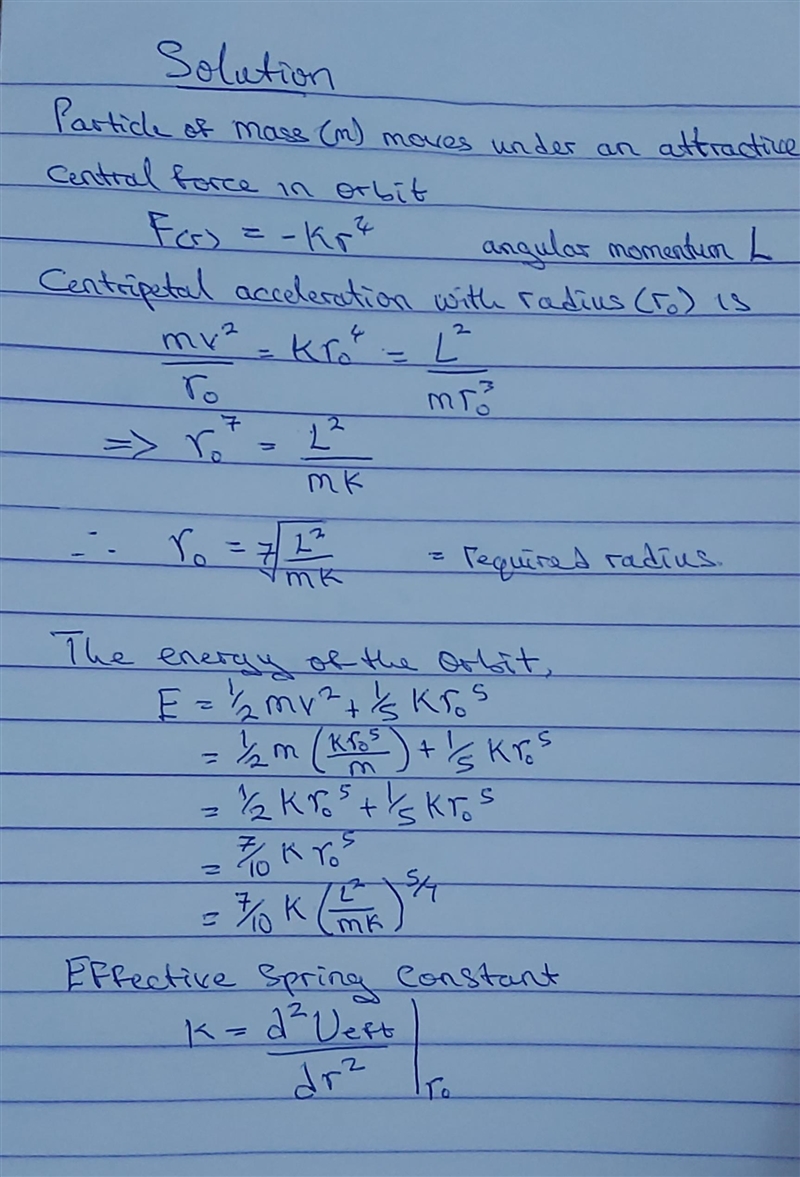 Solution
Particle of mass (m) moves under an attractive
Central force in orbit
F(r) = -Kr⁴ angular momentum L
Centripetal acceleration with radius (r₀) is
mv²/r₀ = Kr₀⁴ = L²/mr₀³
=> r₀⁷ = L²/mK
∴ r₀ = ⁷√(L²/mK) = required radius.
The energy of the orbit,
E = ½mv² + ⅕Kr₀⁵
= ½m(Kr₀⁵/m) + ⅕Kr₀⁵
= ½Kr₀⁵ + ⅕Kr₀⁵
= 7/10 Kr₀⁵
= 7/10 K(L²/mK)^5/7
Effective Spring Constant
K = d²Ueff/dr² |r₀